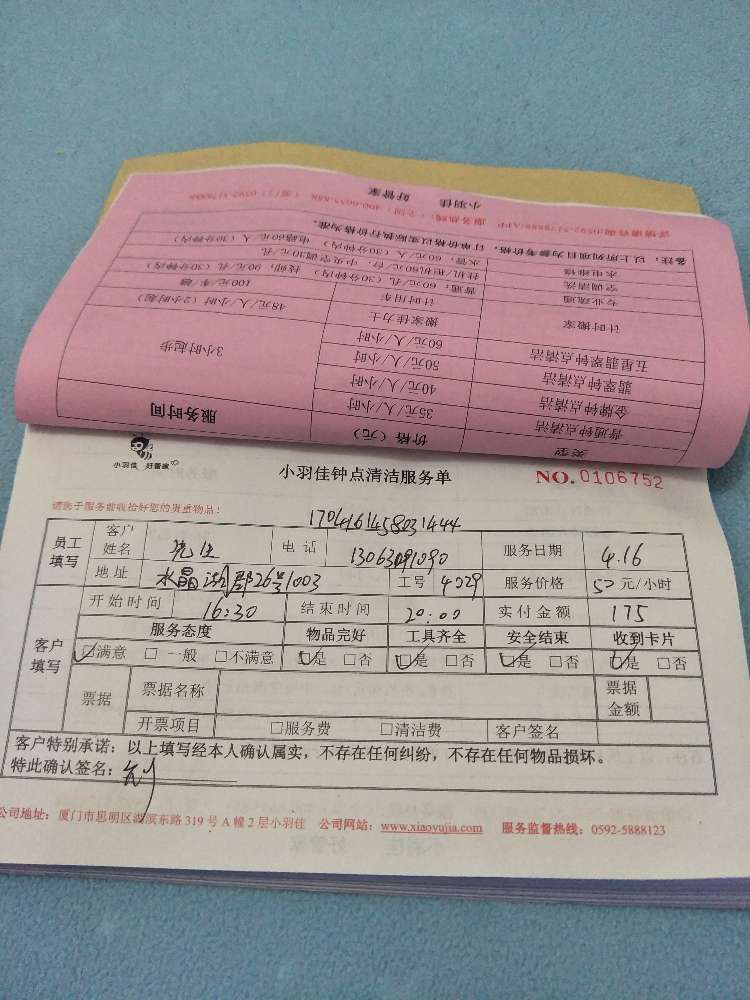 类型 价格（元） 服务时间
普通钟点清洁 35元/人/小时 3小时起步
金牌钟点清洁 40元/人/小时
翡翠钟点清洁 50元/人/小时
五星翡翠钟点清洁 60元/人/小时
计时搬家 搬家佳力士 48元/人/小时（2小时起）
计时用车 100元/车/趟
专业疏通 普通：60元/孔（30分钟内） 技师：90元/孔（30分钟内）
空调清洗
水电维修 水管：60元/人（30分钟内） 电路60元/人（30分钟内）
备注：以上所列项目为参考价格，订单价格以实际执行价格为准。
小羽佳 好管家
小羽佳 好管家
小羽佳钟点清洁服务单
NO. 0106752
请您于服务前收拾好您的贵重物品！
1704161458031444
员工填写 客户姓名 电话 13063091090 服务日期 4.16
地址 水晶湖郡26号1003 工号 4029 服务价格 50元/小时
客户填写 开始时间 16:30 结束时间 20:00 实付金额 175
服务态度 物品完好 工具齐全 安全结束 收到卡片
☑满意 □一般 □不满意 ☑是 □否 ☑是 □否 ☑是 □否 ☑是 □否
票据 票据名称 票据金额
开票项目 □服务费 □清洁费 客户签名
客户特别承诺：以上填写经本人确认属实，不存在任何纠纷，不存在任何物品损坏。
特此确认签名：
公司地址：厦门市思明区湖滨东路319号A幢2层小羽佳 公司网站：www.xiaoyujia.com 服务监督热线：0592-5888123